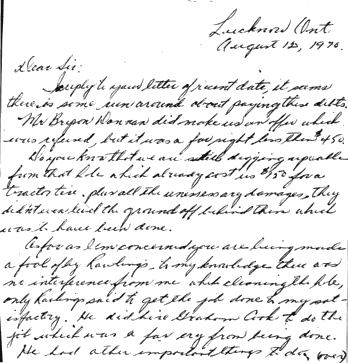 Lucknow Ont
August 12, 1970.
Dear Sir:
In reply to your letter of recent date, it seems
there is some run around about paying these debts.
Mr Bryon Hannan did make us an offer which
was refused, but it was a far sight less than $450.
Do you know that we are still digging
from that hole which already cost us $150 for a
tractor tire, plus all the unnecessary damages, they
did not even level the ground off behind them which
was to have been done.
As far as I'm concerned you are being made
a fool of by Rawlings, to my knowledge there was
no interference from me about cleaning the hole,
only Rawlings said to get the job done to my sat-
isfactry. He did hire Graham Cook to do the
job which was a far cry from being done.
He had other important things to do, (over)